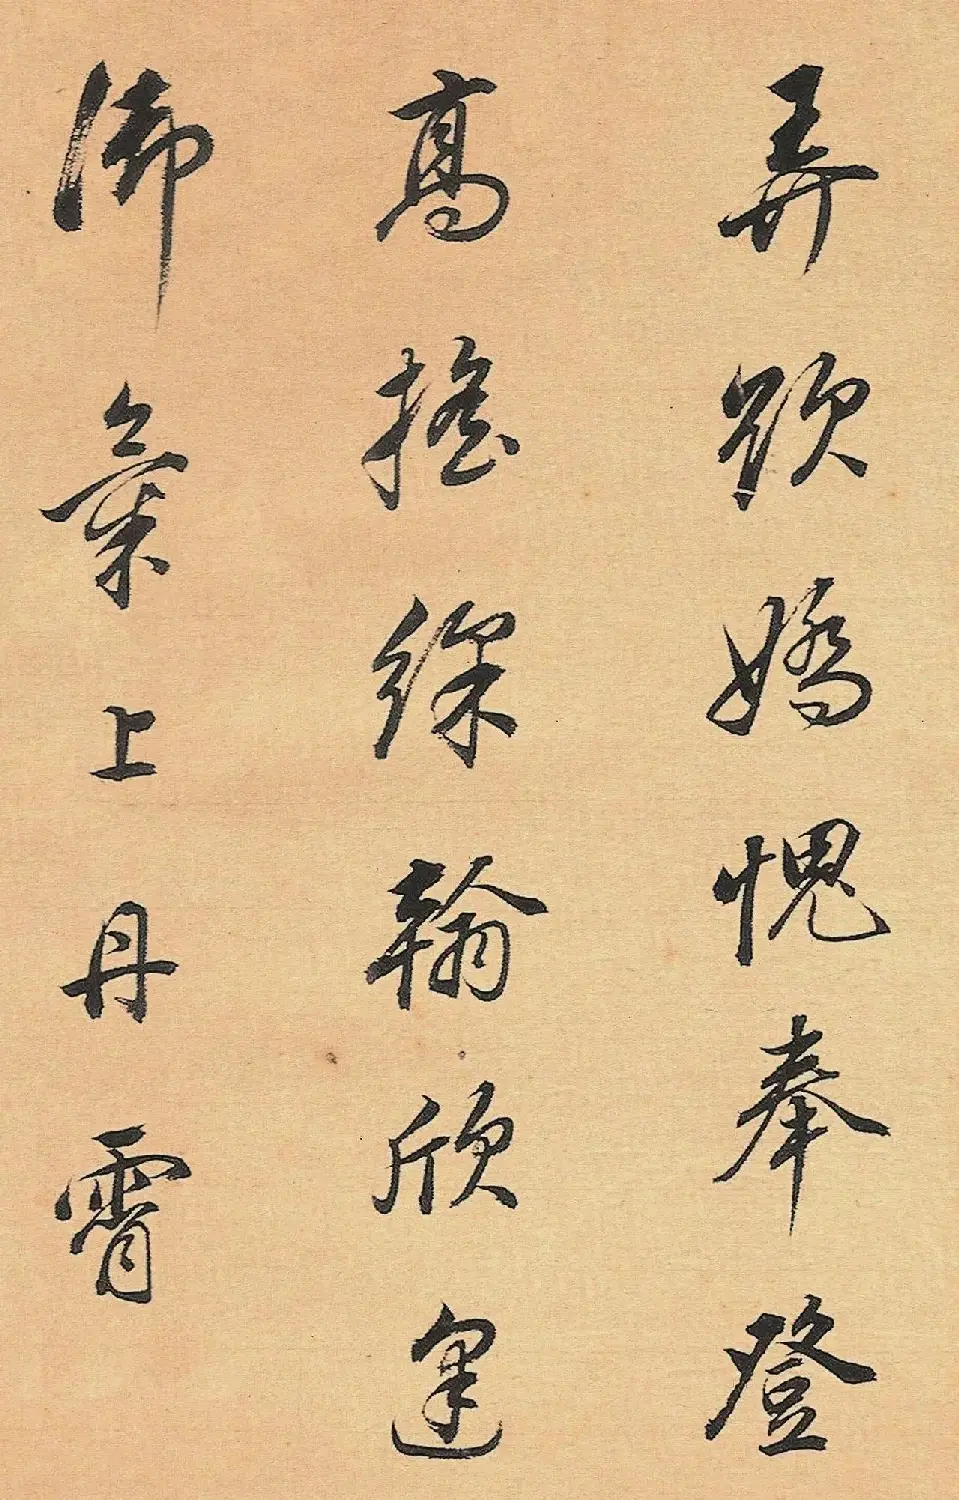 弄欲嬌愧奉登
高搖綵翰欣逢
御氣上丹霄